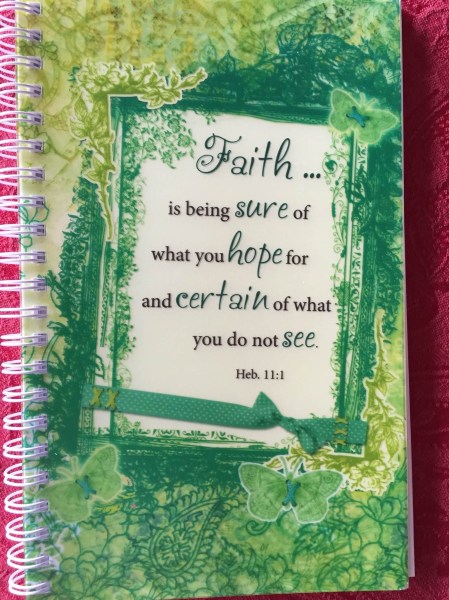 Faith ...
is being sure of
what you hope for
and certain of what
you do not see.
Heb. 11:1